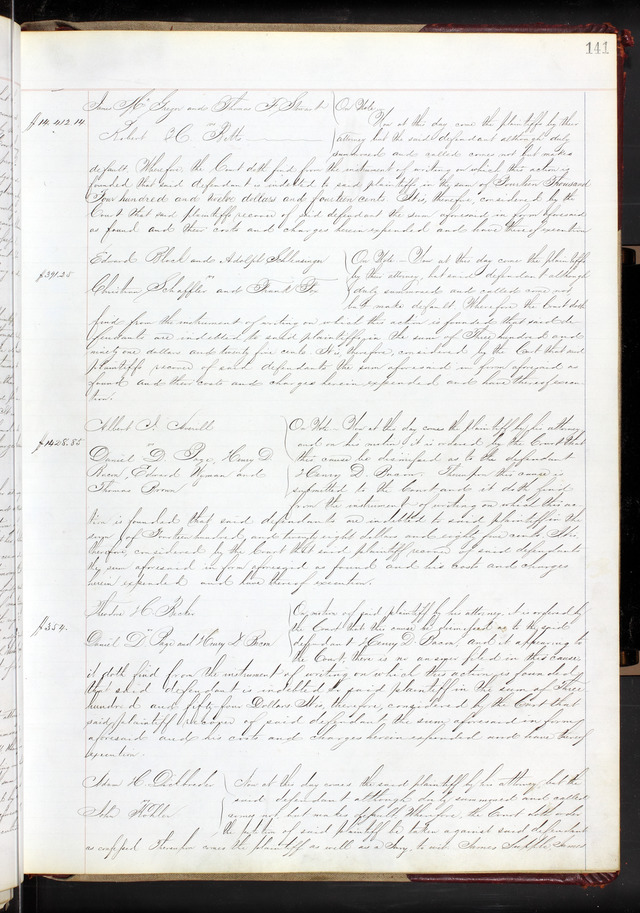 141
and Thomas F. Stewart } On Note
$14.412.14 vs Now at this day come the plaintiffs by their
Robert C. Potts attorney but the said defendant although duly
summoned and called comes not but makes
default. Wherefore the Court doth find from the instrument of writing on which this action is
founded that said defendant is indebted to said plaintiffs in the sum of Fourteen Thousand
Four hundred and twelve dollars and fourteen cents. It is, therefore, considered by the
Court that said plaintiffs recover of said defendant the sum aforesaid in form aforesaid
as found and their costs and charges herein expended and have thereof execution.
Edward Block and Adolph } On Note. Now at this day come the plaintiffs
$391.25 vs by their attorney, but said defendants although
Christian Schaffler and Frank duly summoned and called come not
but make default. Wherefore the Court doth
find from the instrument of writing on which this action is founded that said de-
fendants are indebted to said plaintiffs in the sum of Three hundred and
ninety one dollars and twenty five cents. It is, therefore, considered by the Court that said
plaintiffs recover of said defendants the sum aforesaid in form aforesaid as
found and their costs and charges herein expended and have thereof execu-
tion.
Albert J. } On Note. Now at this day comes the plaintiff by his attorney
$1428.85 vs and on his motion it is ordered by the Court that
Daniel D. Page, Henry D. this cause be dismissed as to the defendant
Bacon, Edward Wyman and Henry D. Bacon. Thereupon this cause is
Thomas Brown submitted to the Court and it doth find
from the instrument of writing on which this ac-
tion is founded that said defendants are indebted to said plaintiff in the
sum of Fourteen hundred and twenty eight dollars and eighty five cents. It is
therefore, considered by the Court that said plaintiff recover of said defendants
the sum aforesaid in form aforesaid as found and his costs and charges
herein expended and have thereof execution.
C. } On motion of said plaintiff by his attorney, it is ordered by
$354. vs the Court that this cause be dismissed as to the said
Daniel D. Page and Henry D. Bacon defendant Henry D. Bacon, and it appearing to
the Court, there is no answer filed in this cause,
it doth find from the instrument of writing on which this action is founded
that said defendant is indebted to said plaintiff in the sum of Three
hundred and fifty four Dollars. It is, therefore, considered by the Court that
said plaintiff recover of said defendant the sum aforesaid in form
aforesaid and his costs and charges herein expended and have thereof
execution.
H. } Now at this day comes the said plaintiff by his attorney, but the
vs said defendant although duly summoned and called
John comes not, but makes default. Wherefore, the Court doth order
the petition of said plaintiff be taken against said defendant
as confessed. Thereupon comes the plaintiff as well as a Jury, to wit: James James